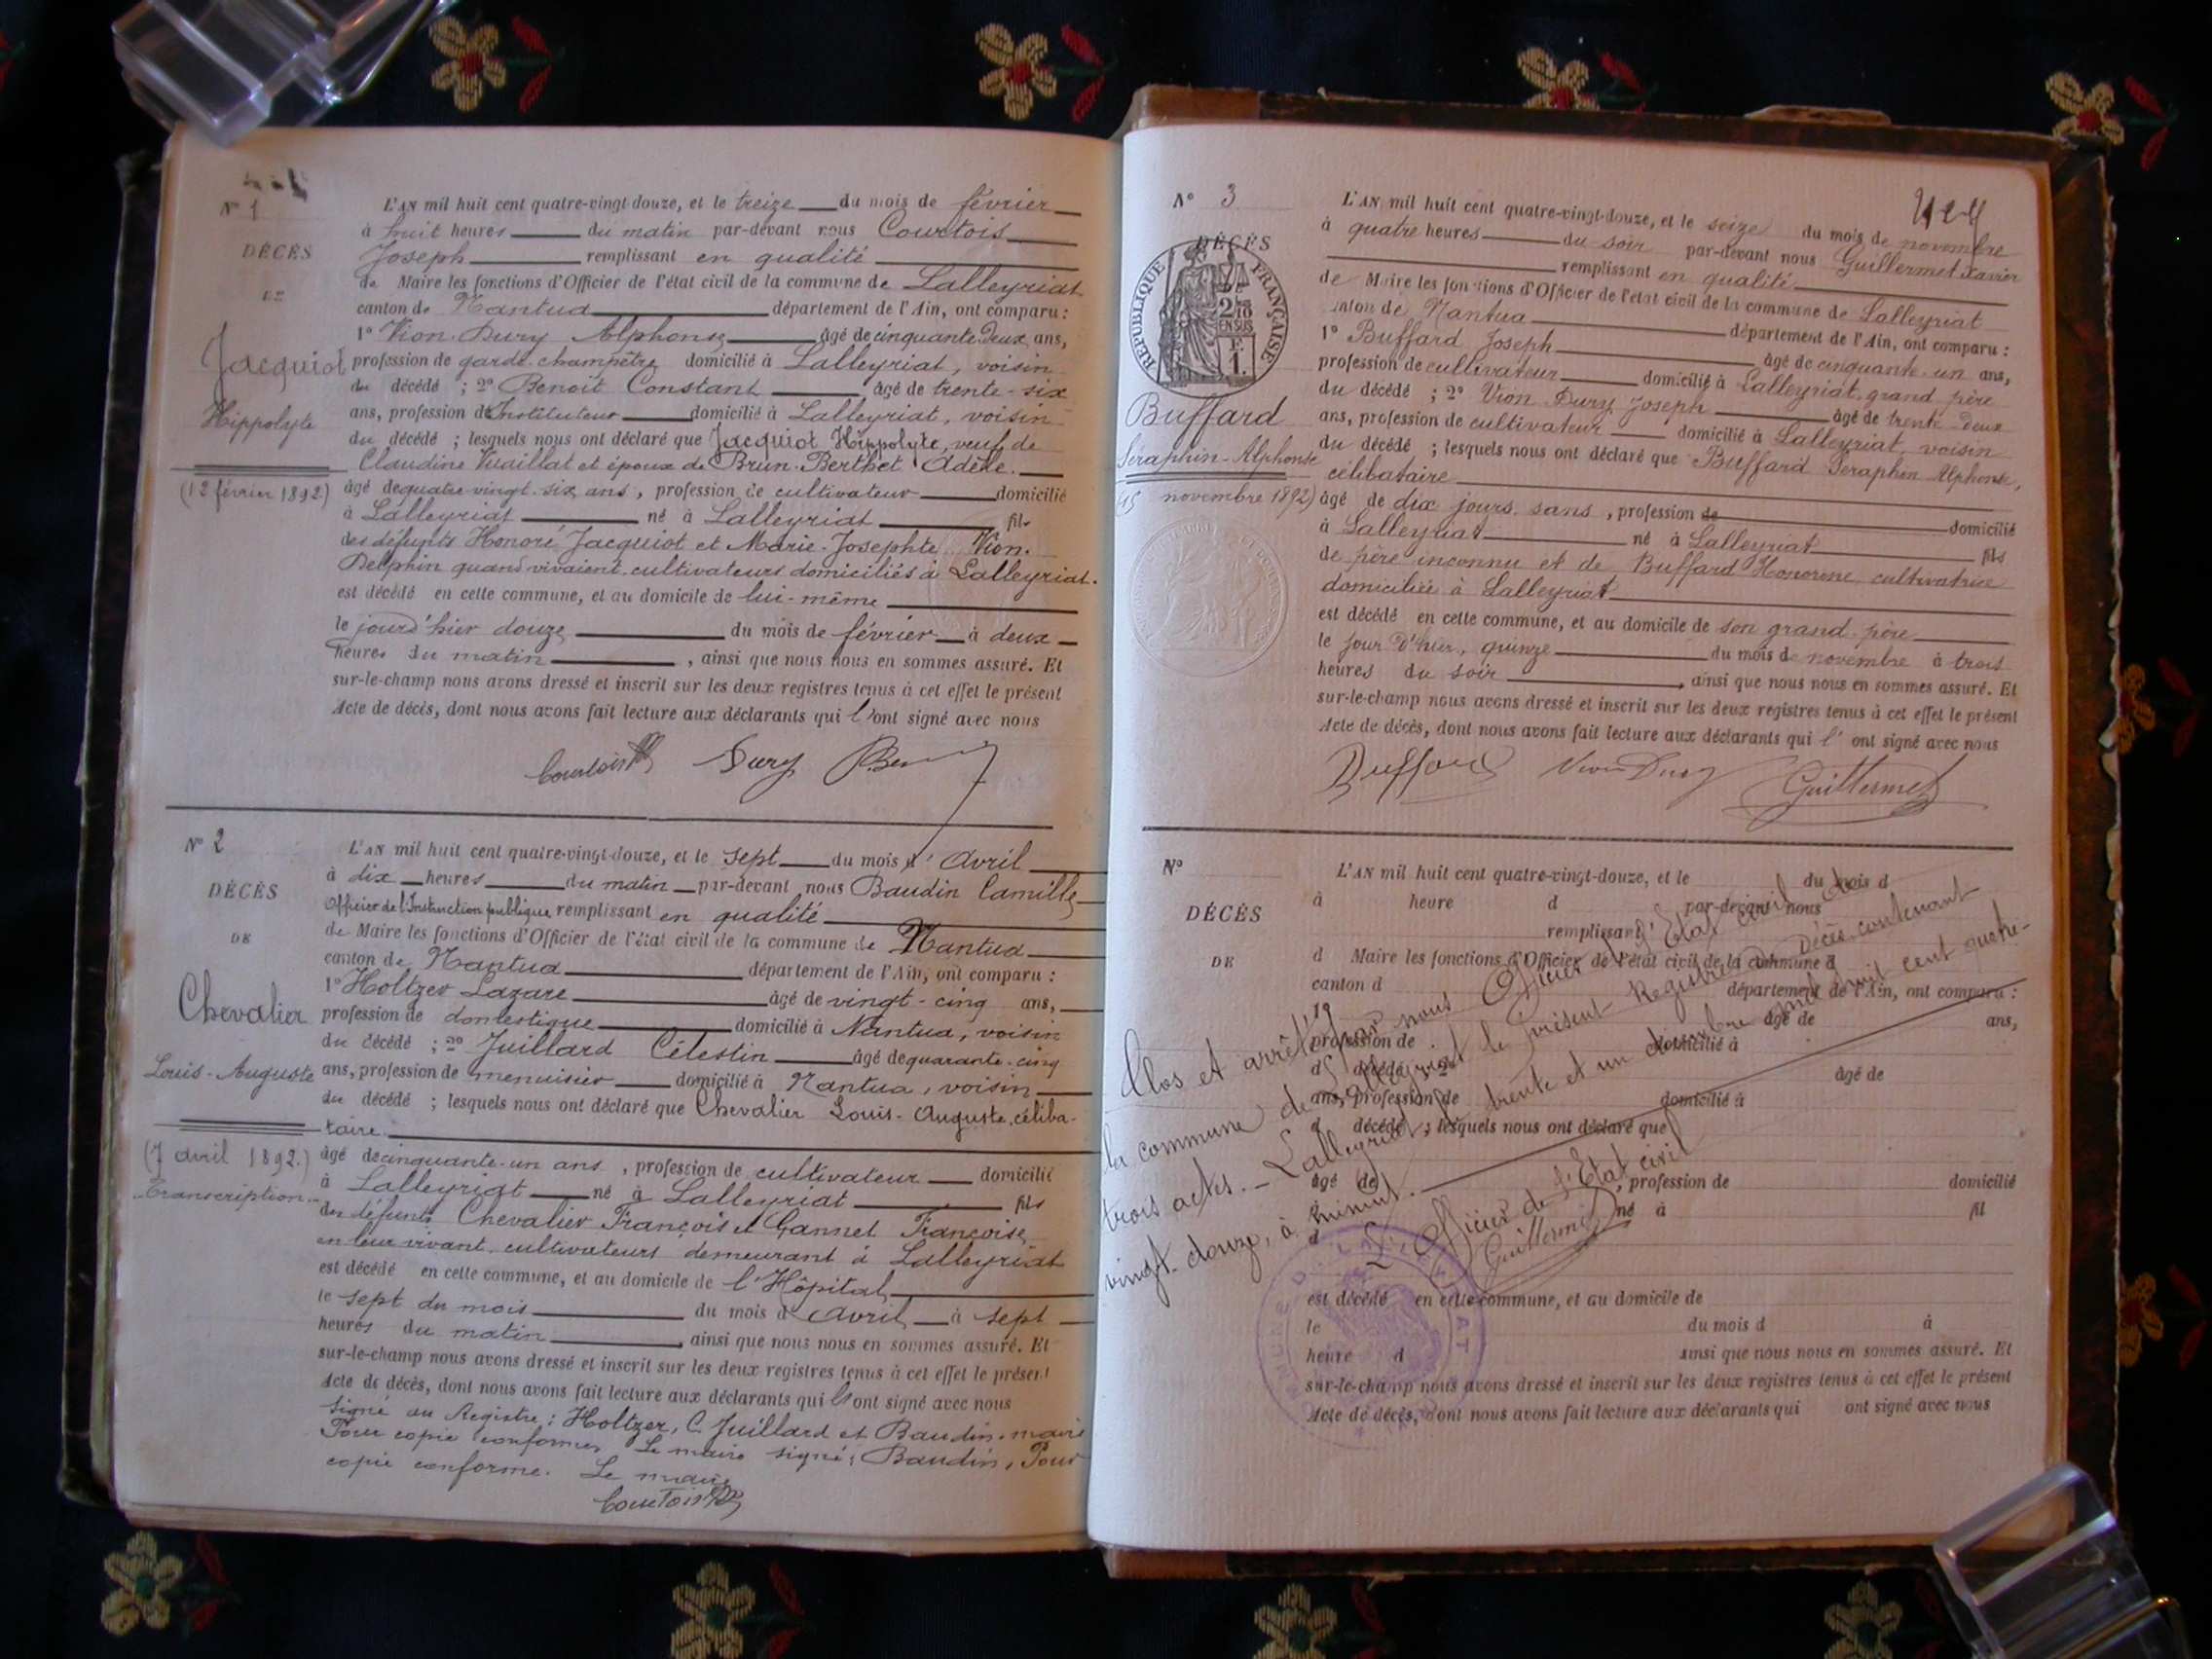 N° 1
DÉCÈS
DE
Jacquiot
Hippolyte
(12 février 1892)
L'AN mil huit cent quatre-vingt-douze, et le treize du mois de février
à huit heures du matin par-devant nous Courtois
Joseph remplissant en qualité
de Maire les fonctions d'Officier de l'état civil de la commune de Lalleyriat
canton de Nantua département de l'Ain, ont comparu :
1° Vion-Dury Alphonse âgé de cinquante deux ans,
profession de garde-champêtre domicilié à Lalleyriat, voisin
du décédé ; 2° Benoit Constant âgé de trente-six
ans, profession d'Instituteur domicilié à Lalleyriat, voisin
du décédé ; lesquels nous ont déclaré que Jacquiot Hippolyte, veuf de
Claudine Vuaillat et époux de Brun-Berthet Adèle.
âgé de quatre-vingt-six ans, profession de cultivateur domicilié
à Lalleyriat né à Lalleyriat fils
des défunts Honoré Jacquiot et Marie-Josephte Vion-
Delphin quand vivaient cultivateurs domiciliés à Lalleyriat.
est décédé en cette commune, et au domicile de lui-même
le jourd'hier douze du mois de février à deux
heures du matin, ainsi que nous nous en sommes assuré. Et
sur-le-champ nous avons dressé et inscrit sur les deux registres tenus à cet effet le présent
Acte de décès, dont nous avons fait lecture aux déclarants qui l'ont signé avec nous
Courtois Dury
N° 2
DÉCÈS
DE
Chevalier
Louis-Auguste
(7 avril 1892.)
Transcription
L'AN mil huit cent quatre-vingt-douze, et le sept du mois d'Avril
à dix heures du matin par-devant nous Baudin Camille
Officier de l'Instruction publique remplissant en qualité
de Maire les fonctions d'Officier de l'état civil de la commune de Nantua
canton de Nantua département de l'Ain, ont comparu :
1° Holtzer Lazare âgé de vingt-cinq ans,
profession de domestique domicilié à Nantua, voisin
du décédé ; 2° Juillard Célestin âgé de quarante-cinq
ans, profession de menuisier domicilié à Nantua, voisin
du décédé ; lesquels nous ont déclaré que Chevalier Louis-Auguste, céliba-
taire.
âgé de cinquante-un ans, profession de cultivateur domicilié
à Lalleyriat né à Lalleyriat fils
des défunts Chevalier François et Gannet Françoise
en leur vivant cultivateurs demeurant à Lalleyriat
est décédé en cette commune, et au domicile de l'Hôpital
le sept du mois du mois d'Avril à sept
heures du matin, ainsi que nous nous en sommes assuré. Et
sur-le-champ nous avons dressé et inscrit sur les deux registres tenus à cet effet le présent
Acte de décès, dont nous avons fait lecture aux déclarants qui l'ont signé avec nous
Signé au Registre : Holtzer, C. Juillard et Baudin, maire
Pour copie conforme, Le maire signé : Baudin, Pour
copie conforme. Le maire
Courtois
N° 3
DÉCÈS
RÉPUBLIQUE FRANÇAISE
2/10 EN SUS
F. 1.
Buffard
Séraphin-Alphonse
(15 novembre 1892)
L'AN mil huit cent quatre-vingt-douze, et le seize du mois de novembre
à quatre heures du soir par-devant nous Guillermet Xavier
remplissant en qualité
de Maire les fonctions d'Officier de l'état civil de la commune de Lalleyriat
canton de Nantua département de l'Ain, ont comparu :
1° Buffard Joseph âgé de cinquante-un ans,
profession de cultivateur domicilié à Lalleyriat, grand père
du décédé ; 2° Vion-Dury Joseph âgé de trente deux
ans, profession de cultivateur domicilié à Lalleyriat, voisin
du décédé ; lesquels nous ont déclaré que Buffard Séraphin Alphonse,
célibataire
âgé de dix jours, sans, profession de domicilié
à Lalleyriat né à Lalleyriat fils
de père inconnu et de Buffard Honorine cultivatrice
domiciliée à Lalleyriat
est décédé en cette commune, et au domicile de son grand-père
le jour d'hier, quinze du mois de novembre à trois
heures du soir, ainsi que nous nous en sommes assuré. Et
sur-le-champ nous avons dressé et inscrit sur les deux registres tenus à cet effet le présent
Acte de décès, dont nous avons fait lecture aux déclarants qui l'ont signé avec nous
Buffard Vion Dury Guillermet
N°
DÉCÈS
DE
L'AN mil huit cent quatre-vingt-douze, et le du mois d
à heure d par-devant nous
remplissant
d Maire les fonctions d'Officier de l'état civil de la commune d
canton d département de l'Ain, ont comparu :
1° âgé de ans,
profession de domicilié à
d décédé ; 2° âgé de
ans, profession de domicilié à
d décédé ; lesquels nous ont déclaré que
âgé de , profession de domicilié
à né à fil
d
est décédé en cette commune, et au domicile de
le du mois d à
heure d ainsi que nous nous en sommes assuré. Et
sur-le-champ nous avons dressé et inscrit sur les deux registres tenus à cet effet le présent
Acte de décès, dont nous avons fait lecture aux déclarants qui ont signé avec nous
Clos et arrêté par nous Officier de l'Etat civil de
la commune de Lalleyriat le présent Registre de Décès contenant
trois actes. - Lalleyriat le trente et un décembre mil huit cent quatre-
vingt-douze, à minuit.
L'Officier de l'Etat civil
Guillermet